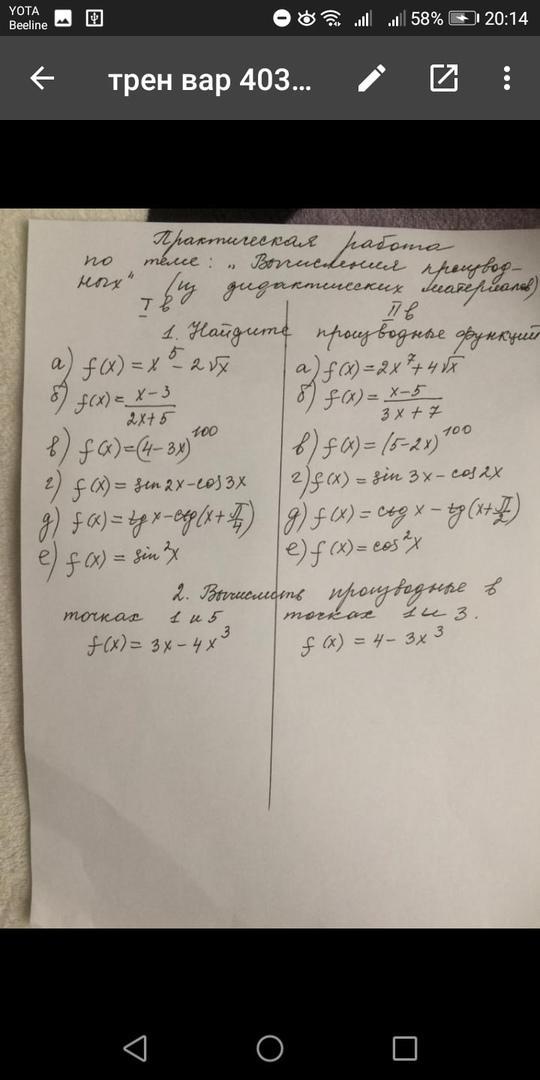 YOTA
Beeline
58% 20:14
трен вар 403...
Практическая работа
по теме: „Вычисления производ-
ных" (из дидактических материалов)
I в
II в
1. Найдите производные функций
а) f(x) = x⁵ - 2√x
б) f(x) = (x-3)/(2x+5)
в) f(x) = (4-3x)¹⁰⁰
г) f(x) = sin 2x - cos 3x
д) f(x) = tg x - ctg (x + π/4)
е) f(x) = sin²x
а) f(x) = 2x⁷ + 4√x
б) f(x) = (x-5)/(3x+7)
в) f(x) = (5-2x)¹⁰⁰
г) f(x) = sin 3x - cos 2x
д) f(x) = ctg x - tg (x + π/2)
е) f(x) = cos²x
2. Вычислить производные в
точках 1 и 5
f(x) = 3x - 4x³
точках 1 и 3.
f(x) = 4 - 3x³